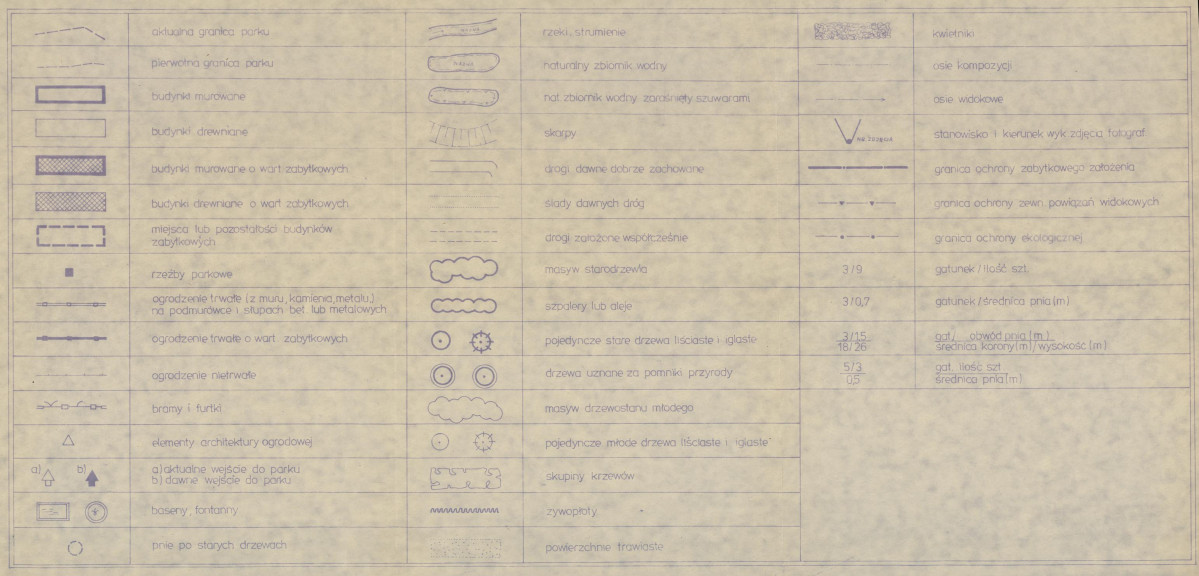 aktualna granica parku
pierwotna granica parku
budynki murowane
budynki drewniane
budynki murowane o wart. zabytkowych
budynki drewniane o wart. zabytkowych
miejsca lub pozostałości budynków
zabytkowych
rzeźby parkowe
ogrodzenie trwałe (z muru, kamienia, metalu,)
na podmurówce i słupach bet. lub metalowych
ogrodzenie trwałe o wart. zabytkowych
ogrodzenie nietrwałe
bramy i furtki
elementy architektury ogrodowej
a) b)
a) aktualne wejście do parku
b) dawne wejście do parku
baseny, fontanny
pnie po starych drzewach
rzeki, strumienie
naturalny zbiornik wodny
nat. zbiornik wodny zarośnięty szuwarami
skarpy
drogi dawne dobrze zachowane
ślady dawnych dróg
drogi założone współcześnie
masyw starodrzewia
szpalery lub aleje
pojedyncze stare drzewa liściaste i iglaste
drzewa uznane za pomniki przyrody
masyw drzewostanu młodego
pojedyncze młode drzewa liściaste i iglaste
skupiny krzewów
żywopłoty
powierzchnie trawiaste
kwietniki
osie kompozycji
osie widokowe
nr zdjęcia
stanowisko i kierunek wyk. zdjęcia fotograf.
granica ochrony zabytkowego założenia
granica ochrony zewn. powiązań widokowych
granica ochrony ekologicznej
3/9
gatunek / ilość szt.
3/0,7
gatunek / średnica pnia (m)
3/1,5
18/26
gat./ obwód pnia (m)
średnica korony (m) / wysokość (m)
5/3
0,5
gat. ilość szt
średnica pnia (m)